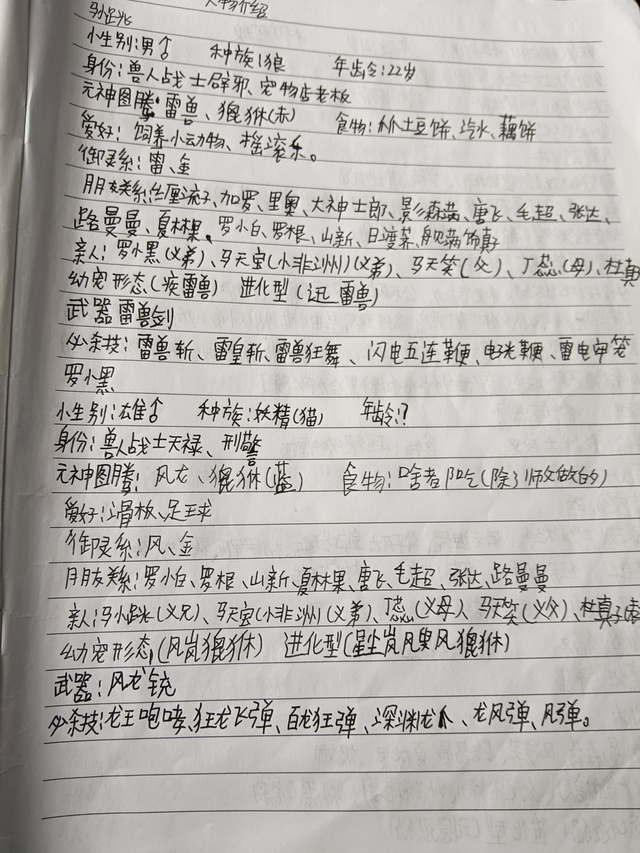 人物介绍
马小跳
小生别:男♂ 种族:狼 年龄:22岁
身份:兽人战士辟邪、宠物店老板
元神图腾:雷兽、貔貅(赤) 食物:土豆饼、汽水、藕饼
爱好:饲养小动物、摇滚乐。
御灵系:雷、金
朋友关系:厘流子、加罗、里奥、大神士郎、影森满、唐飞、毛超、张达、
路曼曼、夏林果、罗小白、罗根、山新、日渡荞、舰满饰真
亲人:罗小黑(义弟)、马天宝(小非洲)(义弟)、马天笑(父)、丁蕊(母)、杜真
幼宠形态(疾雷兽) 进化型(迅雷兽)
武器雷兽剑
必杀技:雷兽斩、雷皇斩、雷兽狂舞、闪电五连鞭、电光鞭、雷电牢笼
罗小黑
小生别:雄♂ 种族:妖精(猫) 年龄:?
身份:兽人战士天禄、刑警
元神图腾:风龙、貔貅(蓝) 食物:啥都吃(除了师父做的)
爱好:滑板、足球
御灵系:风、金
朋友关系:罗小白、罗根、山新、夏林果、唐飞、毛超、张达、路曼曼
亲人:马小跳(义兄)、马天宝(小非洲)(义弟)、丁蕊(义母)、马天笑(义父)、杜真子
幼宠形态(风岚貔貅) 进化型(星尘岚风貔貅)
武器:风龙铳
必杀技:龙王咆哮、狂龙飞弹、百龙狂弹、深渊龙爪、龙风弹、风弹。